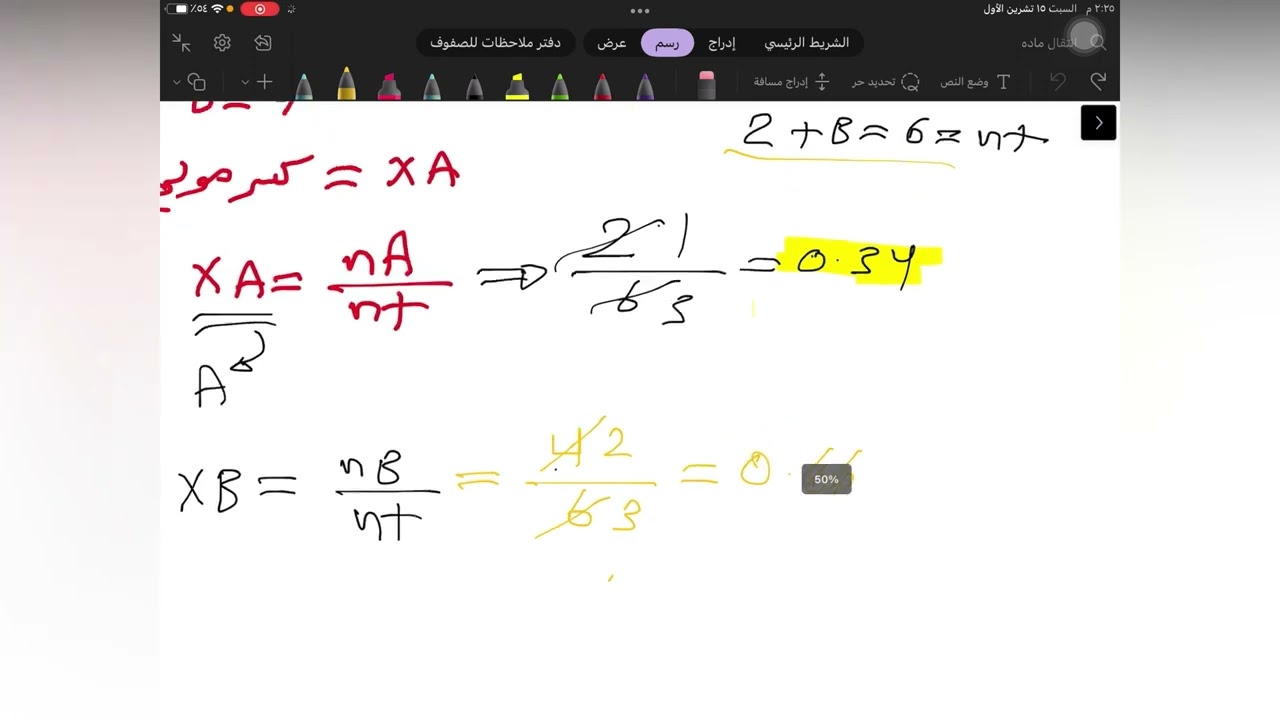 ٢:٢٥ م السبت ١٥ تشرين الأول
٥٤٪
انتقال ماده
الشريط الرئيسي إدراج رسم عرض دفتر ملاحظات للصفوف
وضع النص تحديد حر إدراج مسافة
2 + B = 6 = nt
كسر مولي = XA
XA = nA / nt ⇒ 2 1 / 6 3 = 0.34
A
XB = nB / nt = 4 2 / 6 3 = 0.
50%